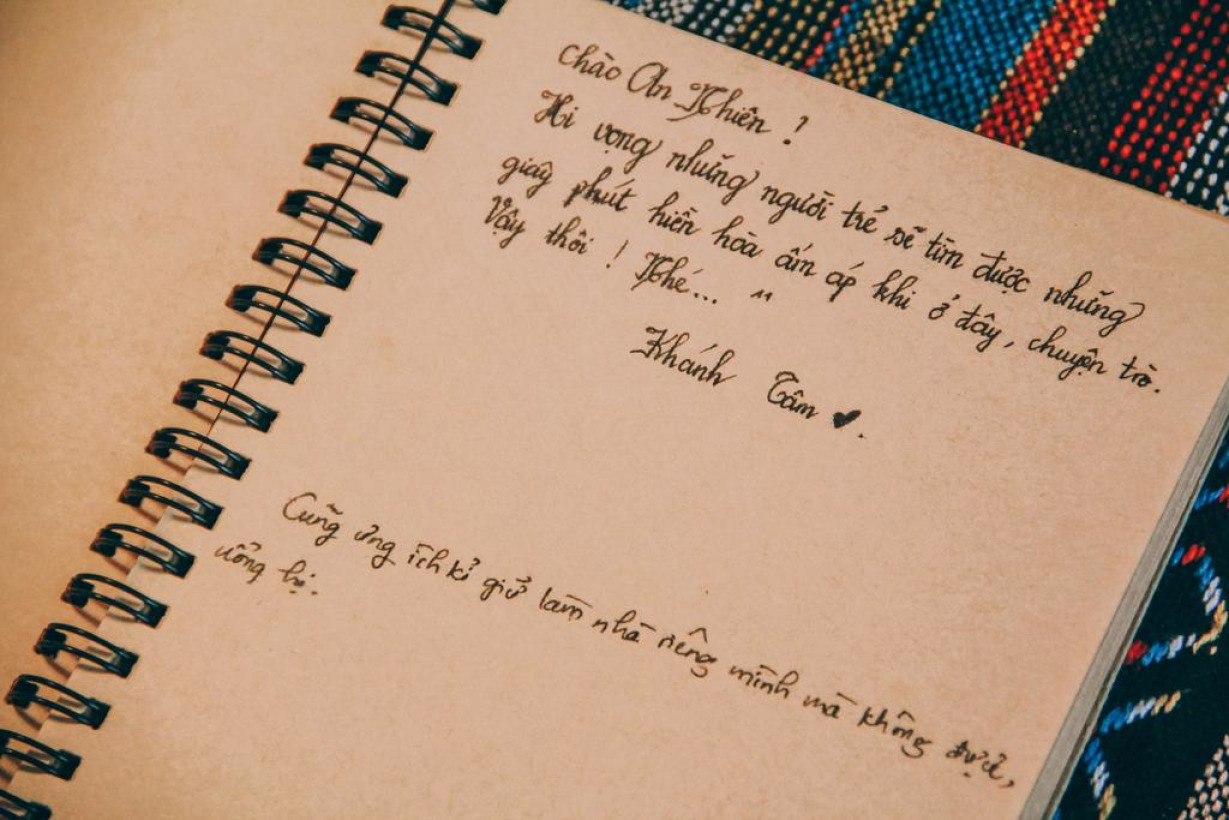 Chào An Nhiên !
Hi vọng những người trẻ sẽ tìm được những
giây phút hiền hòa ấm áp khi ở đây, chuyện trò.
Vậy thôi ! Nhé... "
Khánh Tâm ♥.
Cũng ưng ích kỉ giữ làm nhà riêng mình mà không được,
uổng hị.